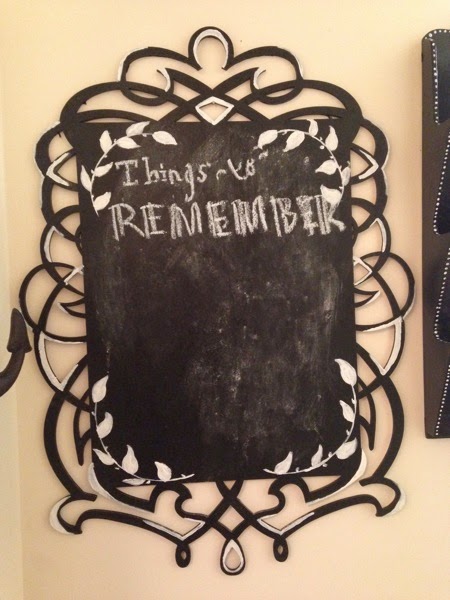 Things to
REMEMBER